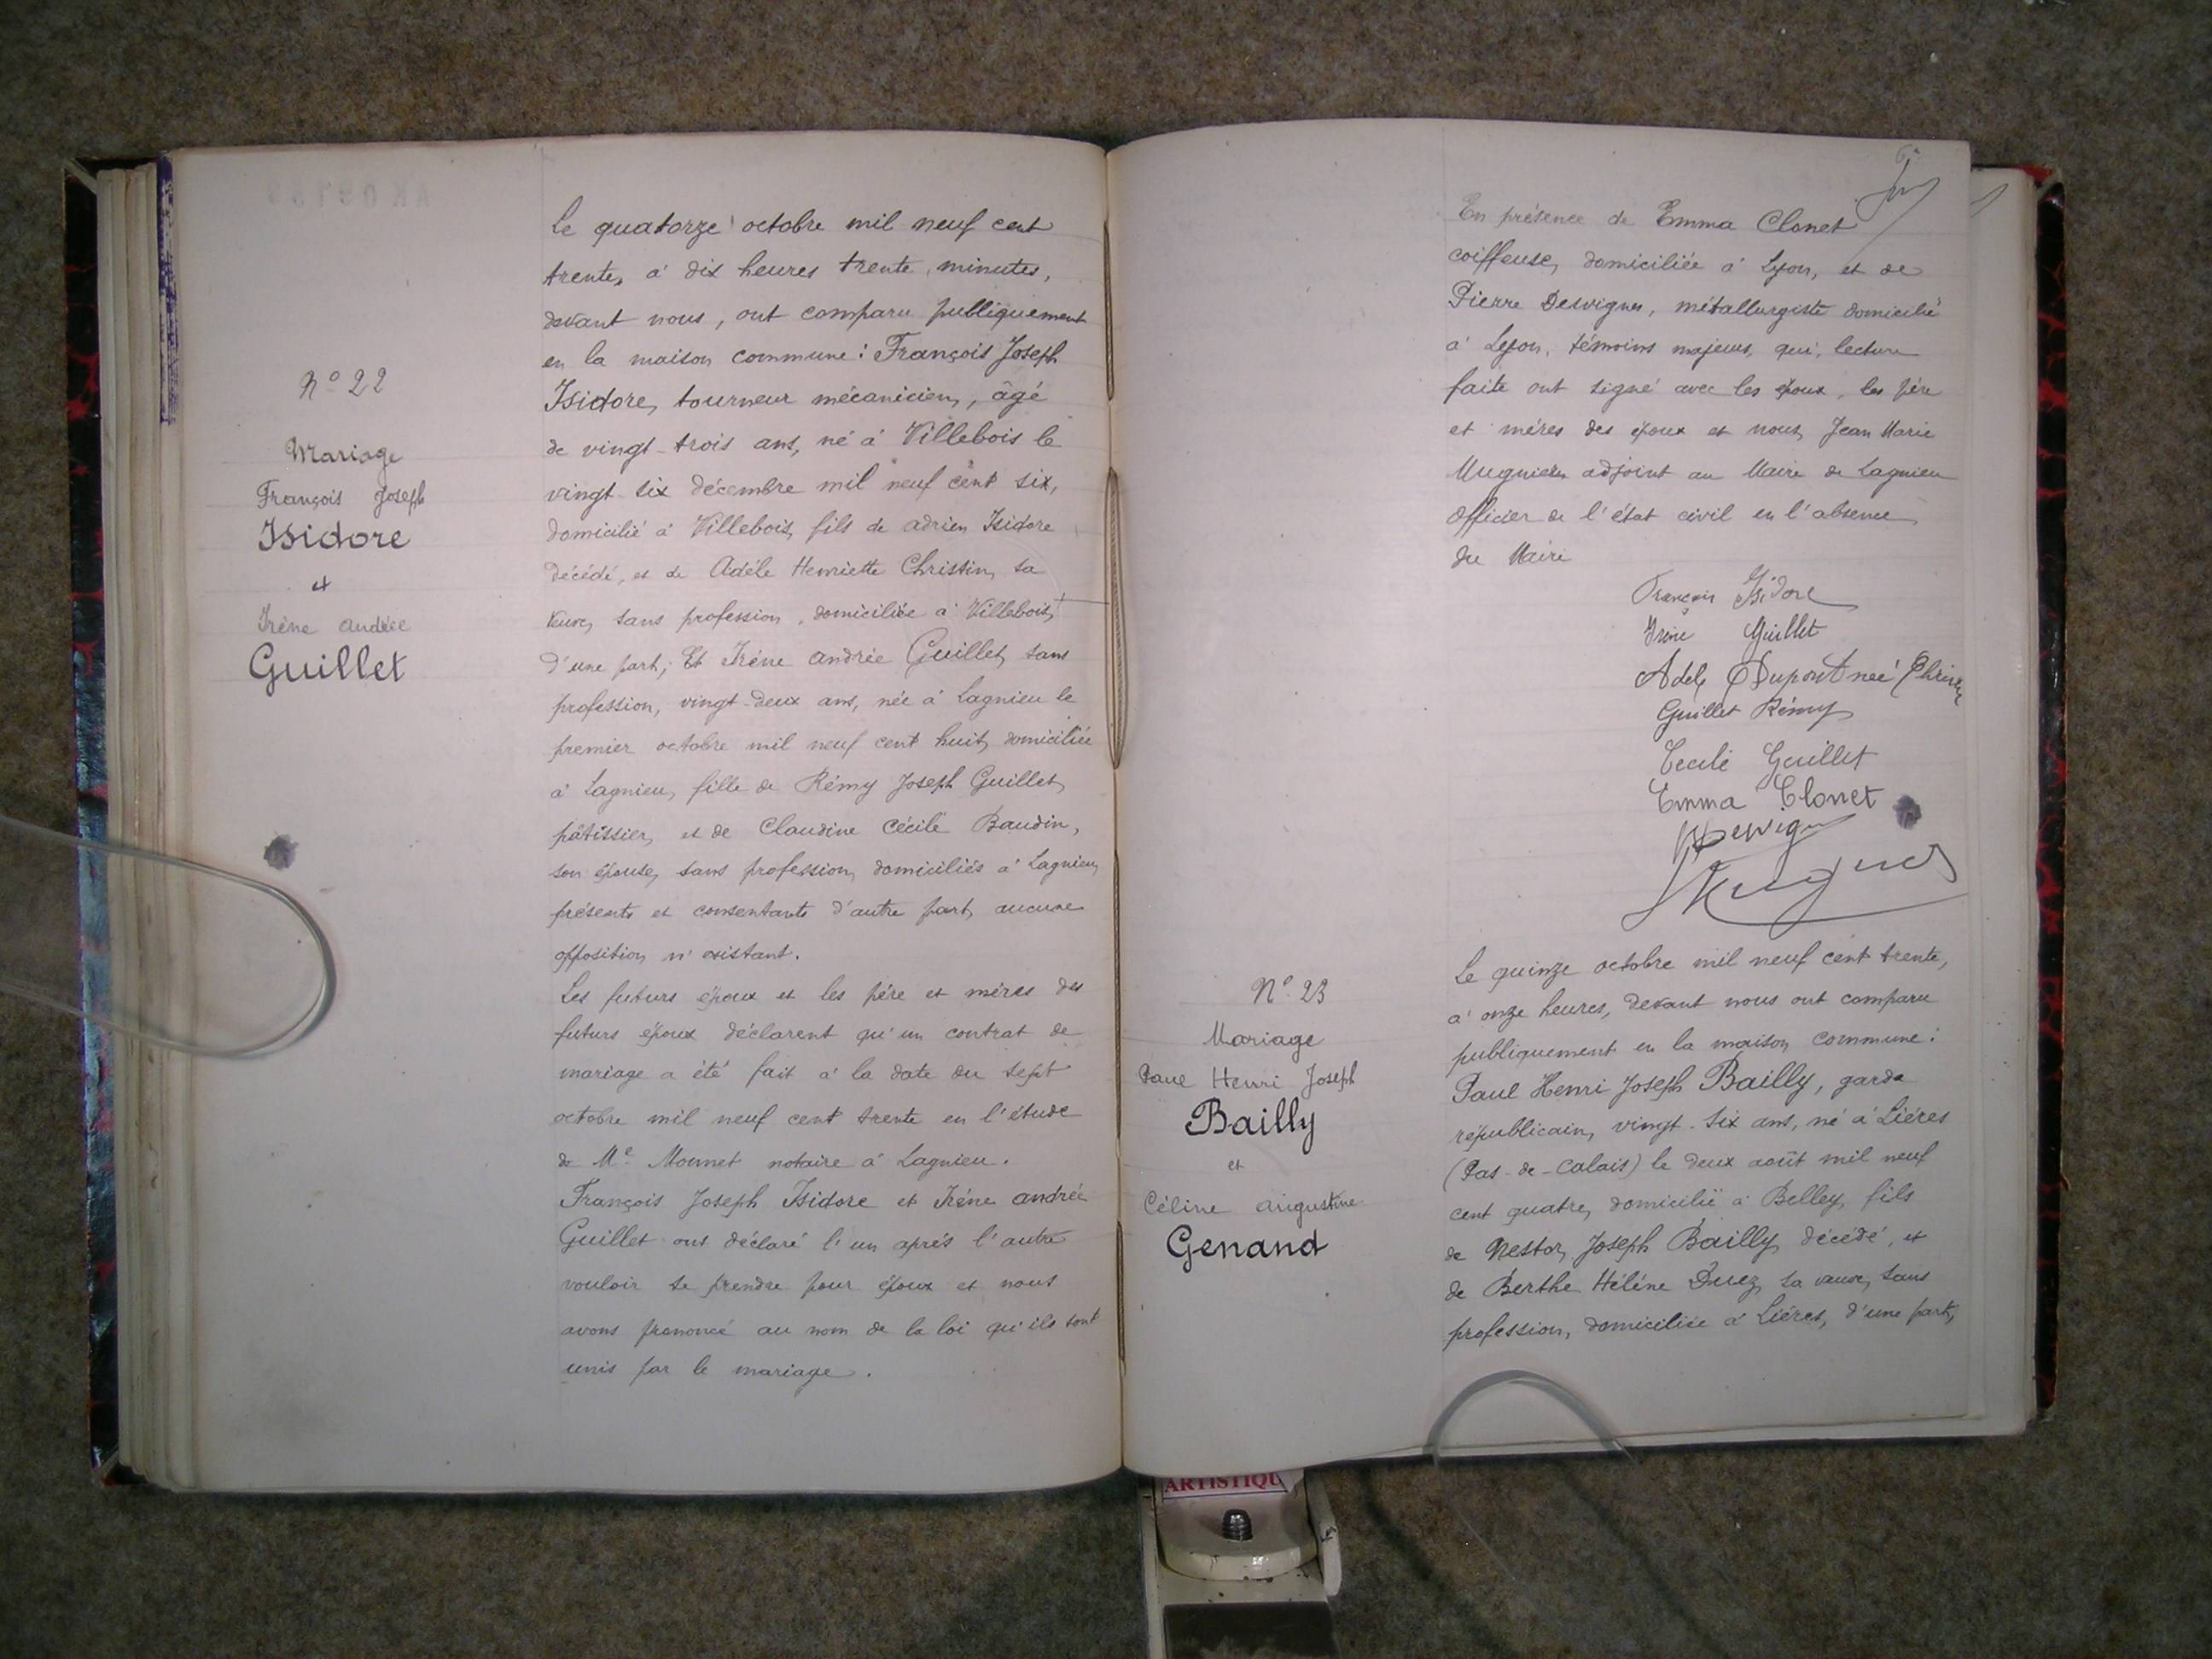 N° 22
Mariage
François Joseph
Isidore
et
Irène Andrée
Guillet
Le quatorze octobre mil neuf cent
trente, à dix heures trente minutes,
devant nous, ont comparu publiquement
en la maison commune : François Joseph
Isidore, tourneur mécanicien, âgé
de vingt-trois ans, né à Villebois le
vingt-six décembre mil neuf cent six,
domicilié à Villebois, fils de Adrien Isidore
décédé, et de Adèle Henriette Christin, sa
veuve, sans profession, domiciliée à Villebois,
d'une part ; Et Irène Andrée Guillet, sans
profession, vingt-deux ans, née à Lagnieu le
premier octobre mil neuf cent huit, domiciliée
à Lagnieu, fille de Rémy Joseph Guillet,
pâtissier, et de Claudine Cécile Baudin,
son épouse, sans profession, domiciliés à Lagnieu,
présents et consentants d'autre part, aucune
opposition n'existant.
Les futurs époux et les père et mères des
futurs époux déclarent qu'un contrat de
mariage a été fait à la date du sept
octobre mil neuf cent trente en l'étude
de Me Monnet notaire à Lagnieu.
François Joseph Isidore et Irène Andrée
Guillet ont déclaré l'un après l'autre
vouloir se prendre pour époux et nous
avons prononcé au nom de la loi qu'ils sont
unis par le mariage.
En présence de Emma Clonet
coiffeuse, domiciliée à Lyon, et de
Pierre Desvignes, métallurgiste domicilié
à Lyon, témoins majeurs, qui, lecture
faite ont signé avec les époux, les père
et mères des époux et nous, Jean Marie
Mugnier adjoint au Maire de Lagnieu
Officier de l'état civil en l'absence
du Maire
François Isidore
Irène Guillet
Adèle Dupont née Christin
Guillet Rémy
Cecile Guillet
Emma Clonet
N° 23
Mariage
Paul Henri Joseph
Bailly
et
Céline Augustine
Genand
Le quinze octobre mil neuf cent trente,
à onze heures, devant nous ont comparu
publiquement en la maison commune :
Paul Henri Joseph Bailly, garde
républicain, vingt-six ans, né à Lières
(Pas-de-Calais) le deux août mil neuf
cent quatre, domicilié à Belley, fils
de Nestor Joseph Bailly, décédé, et
de Berthe Hélène Duez, sa veuve, sans
profession, domiciliée à Lières, d'une part,
ARTISTIQU